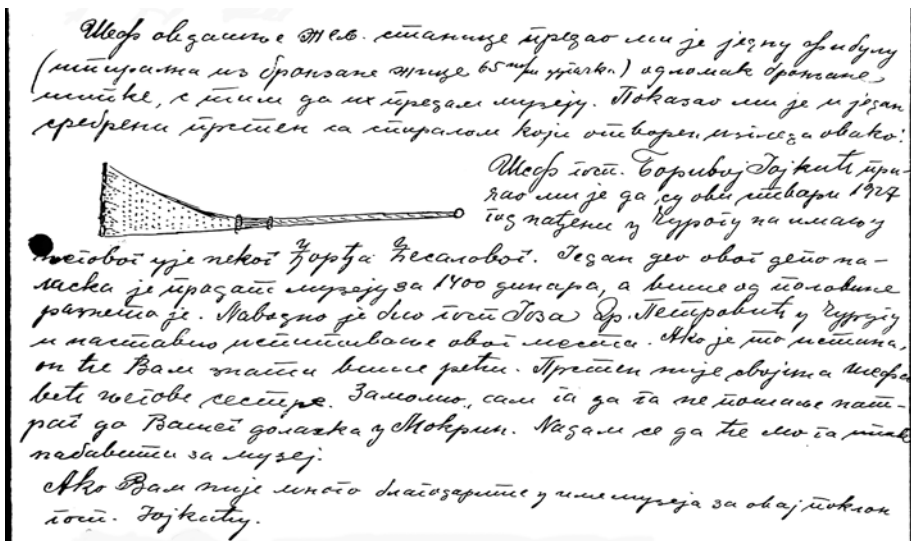 Шеф овдашње жел. станице предао ми је једну фибулу
(спирала из бронзане жице 65 mm дугачка) одломак бронзане
шипке, с тим да их предам музеју. Показао ми је и један
сребрени прстен са спиралом који отворен изгледа овако:
Шеф госп. Боривој Гојкић при-
чао ми је да су ови ствари 1927
год нађени у Чуругу на имању
његовог ује неког Ђорђа Ћесаловог. Један део овог депо на-
ласка је продат музеју за 1400 динара, а више од половине
разнета је. Наводно је био госп Јоза Др. Петровић у Чуругу
и наставио испитивање овог места. Ако је то истина,
он ће Вам знати више рећи. Прстен није својина шефа
већ његове сестре. Замолио сам га да га не пошаље нат-
раг до Вашег доласка у Мокрин. Надам се да ће мо га
набавити за музеј.
Ако Вам није много благодарите у име музеја за овај поклон
госп. Гојкићу.